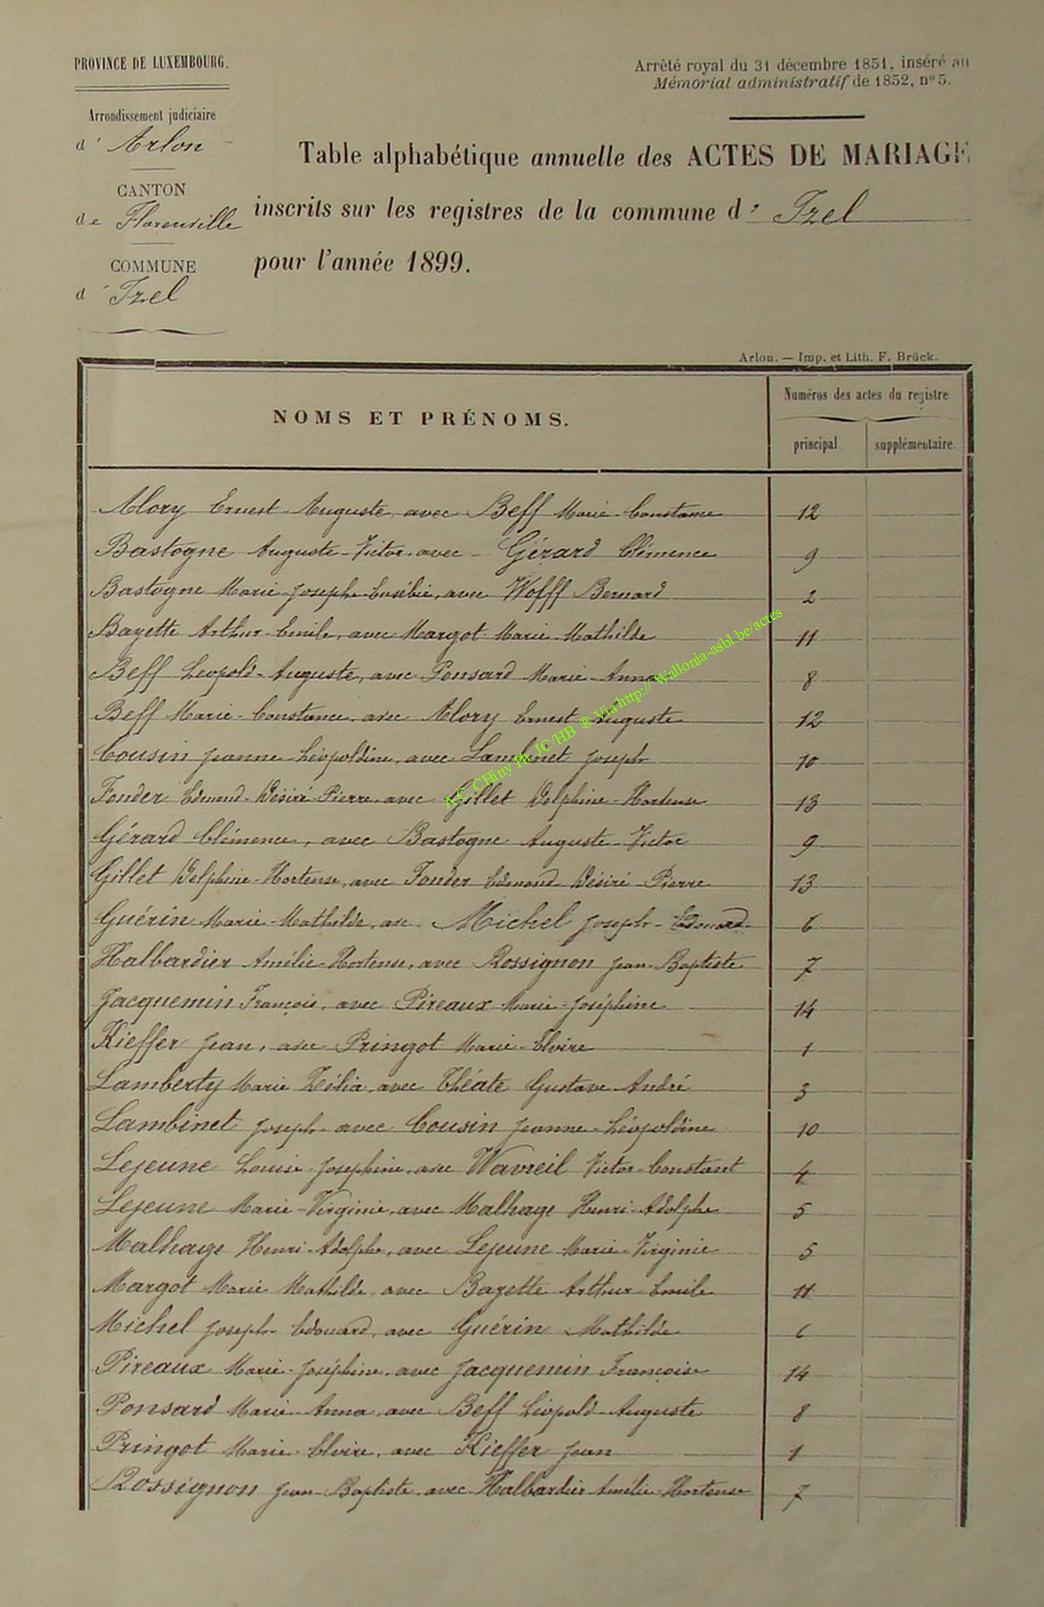 PROVINCE DE LUXEMBOURG.
Arrêté royal du 31 décembre 1851, inséré au
Mémorial administratif de 1852, n° 5.
Arrondissement judiciaire
d' Arlon
CANTON
de Florenville
COMMUNE
d' Izel
Table alphabétique annuelle des ACTES DE MARIAGE
inscrits sur les registres de la commune d' Izel
pour l'année 1899.
Arlon. — Imp. et Lith. F. Brück.
NOMS ET PRÉNOMS.
Numéros des actes du registre
principal. supplémentaire.
Alory Ernest Auguste, avec Beff Marie-Constance 12
Bastogne Auguste-Victor avec Gérard Clémence 9
Bastogne Marie-Joseph-Eusébie, avec Wolff Bernard 2
Bayette Arthur-Emile, avec Margot Marie-Mathilde 11
Beff Léopold-Auguste, avec Ponsard Marie-Anna 8
Beff Marie-Constance, avec Alory Ernest Auguste 12
Cousin Jeanne-Léopoldine, avec Lambinet Joseph 10
Fonder Edmond-Désiré-Pierre, avec Gillet Delphine-Hortense 13
Gérard Clémence, avec Bastogne Auguste-Victor 9
Gillet Delphine-Hortense, avec Fonder Edmond-Désiré-Pierre 13
Guérin Marie-Mathilde, avec Michel Joseph-Edouard 6
Halbardier Amélie-Hortense, avec Rossignon Jean-Baptiste 7
Jacquemin François, avec Pireaux Marie-Joséphine 14
Kieffer Jean, avec Pringot Marie-Elvire 1
Lamberty Marie Zélia, avec Théate Gustave André 3
Lambinet Joseph avec Cousin Jeanne-Léopoldine 10
Lejeune Louise-Josephine, avec Wavreil Victor-Constant 4
Lejeune Marie-Virginie, avec Malhage Henri-Adolphe 5
Malhage Henri-Adolphe, avec Lejeune Marie-Virginie 5
Margot Marie Mathilde, avec Bayette Arthur-Emile 11
Michel Joseph-Edouard, avec Guérin Mathilde 6
Pireaux Marie-Joséphine, avec Jacquemin François 14
Ponsard Marie-Anna, avec Beff Léopold-Auguste 8
Pringot Marie-Elvire, avec Kieffer Jean 1
Rossignon Jean-Baptiste, avec Halbardier Amélie-Hortense 7
A.C. CHiny Ph. JC/HB ® Via http:// Wallonia-asbl.be/actes